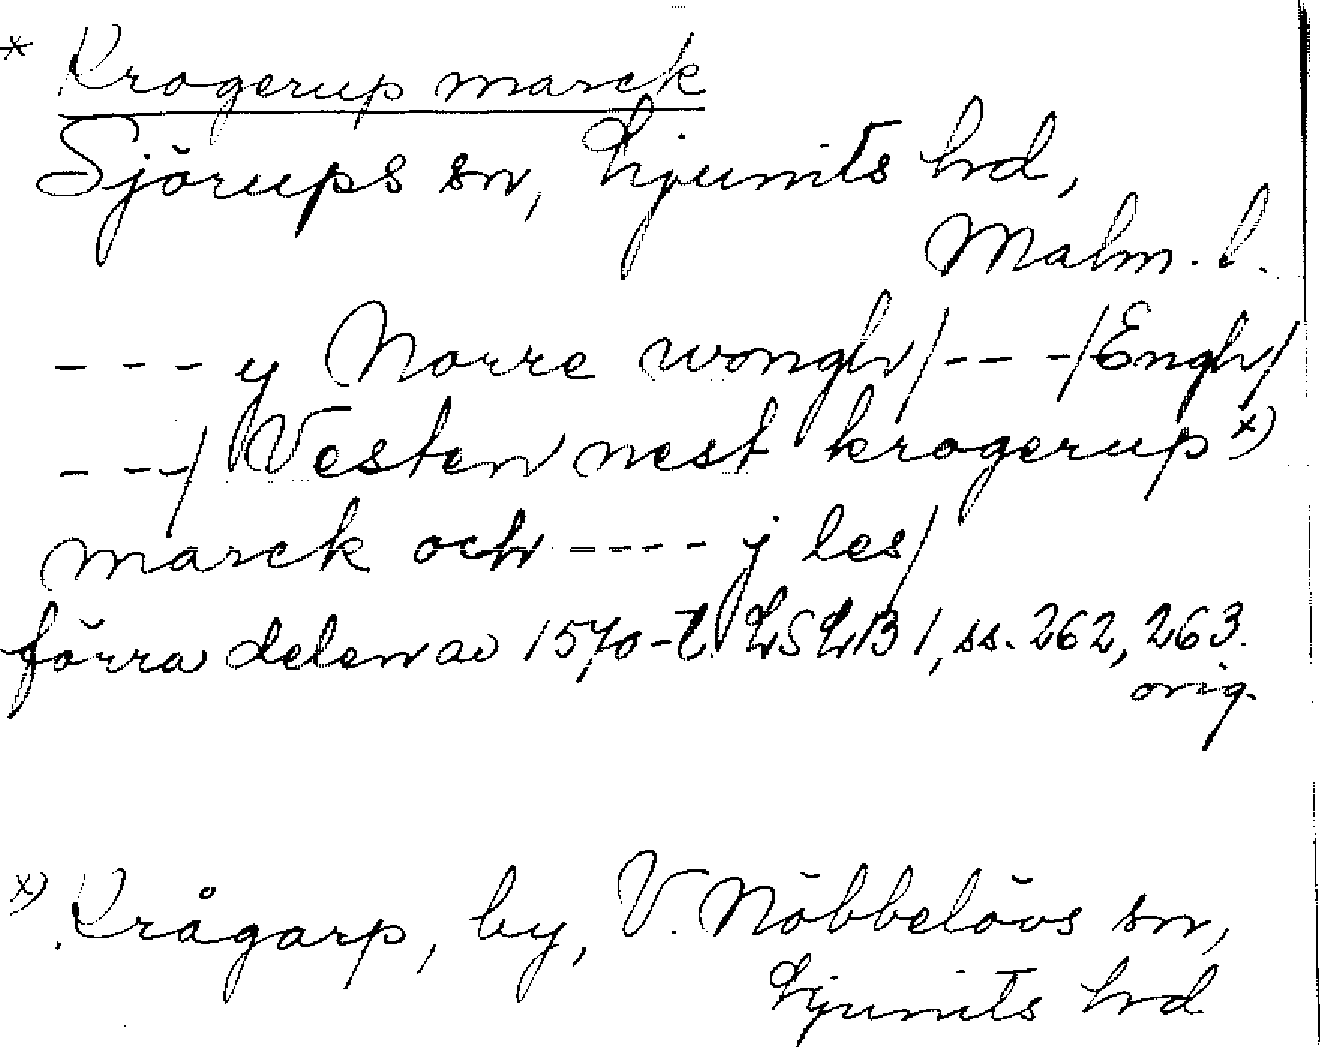 * Krogerup marck
Sjörups sn, Ljunits hd,
Malm. l.
- - - y Norre wongh/ - - -/Engh/
- - -/ Vesten nest krogerup x)
marck och - - - - y les/
förra delen av 1570-t. LSLB 1, ss. 262, 263.
orig.
x) Krågarp, by, V. Nöbbelövs sn,
Ljunits hd